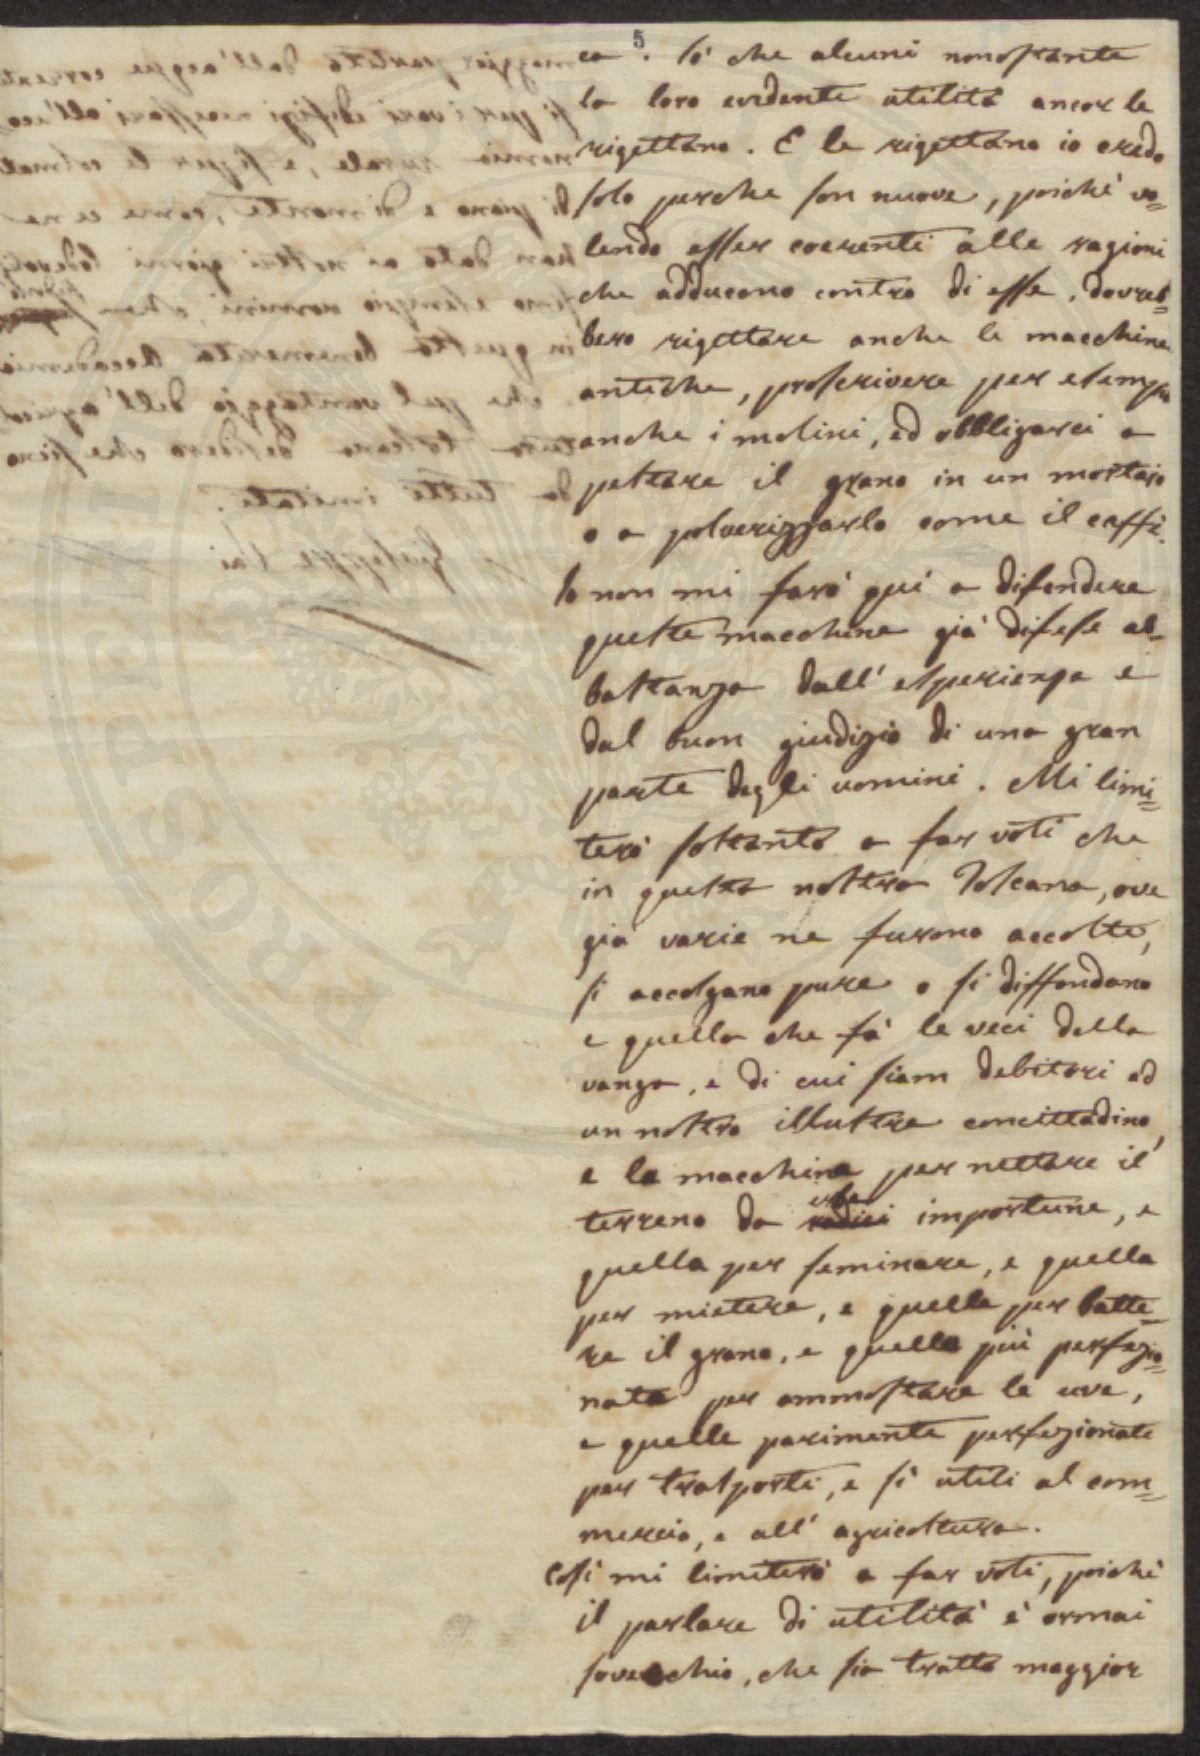 5
ca. So che alcuni nonostante
la loro evidente utilità ancor le
rigettano. E le rigettano io credo
solo perche son nuove, poichè vo=
lendo esser coerenti alle ragioni
che adducono contro di esse, dovreb=
bero rigettare anche le macchine
antiche, proscrivere per esempio
anche i molini, ed obbligarci a
pestare il grano in un mortaio
o a polverizzarlo come il caffè.
Io non mi farò quì a difendere
queste macchine già difese ab=
bastanza dall' esperienza e
dal buon giudizio di una gran
parte degli uomini. Mi limi=
terò soltanto a far voti che
in questa nostra Toscana, ove
già varie ne furono accolte,
si accolgano pure o si diffondano
e quella che fà le veci della
vanga, e di cui siam debitori ad
un nostro illustre concittadino,
e la macchina per nettare il
erbe
terreno da radici importune, e
quella per seminare, e quella
per mietere, e quelle per batte=
re il grano, e quella più perfezio=
nata per ammostare le uve,
e quelle parimente perfezionate
per trasporti, e sì utili al com=
mercio, e all' agricoltura.
Così mi limiterò a far voti, poichè
il parlare di utilità è ormai
soverchio, che sia tratto maggior